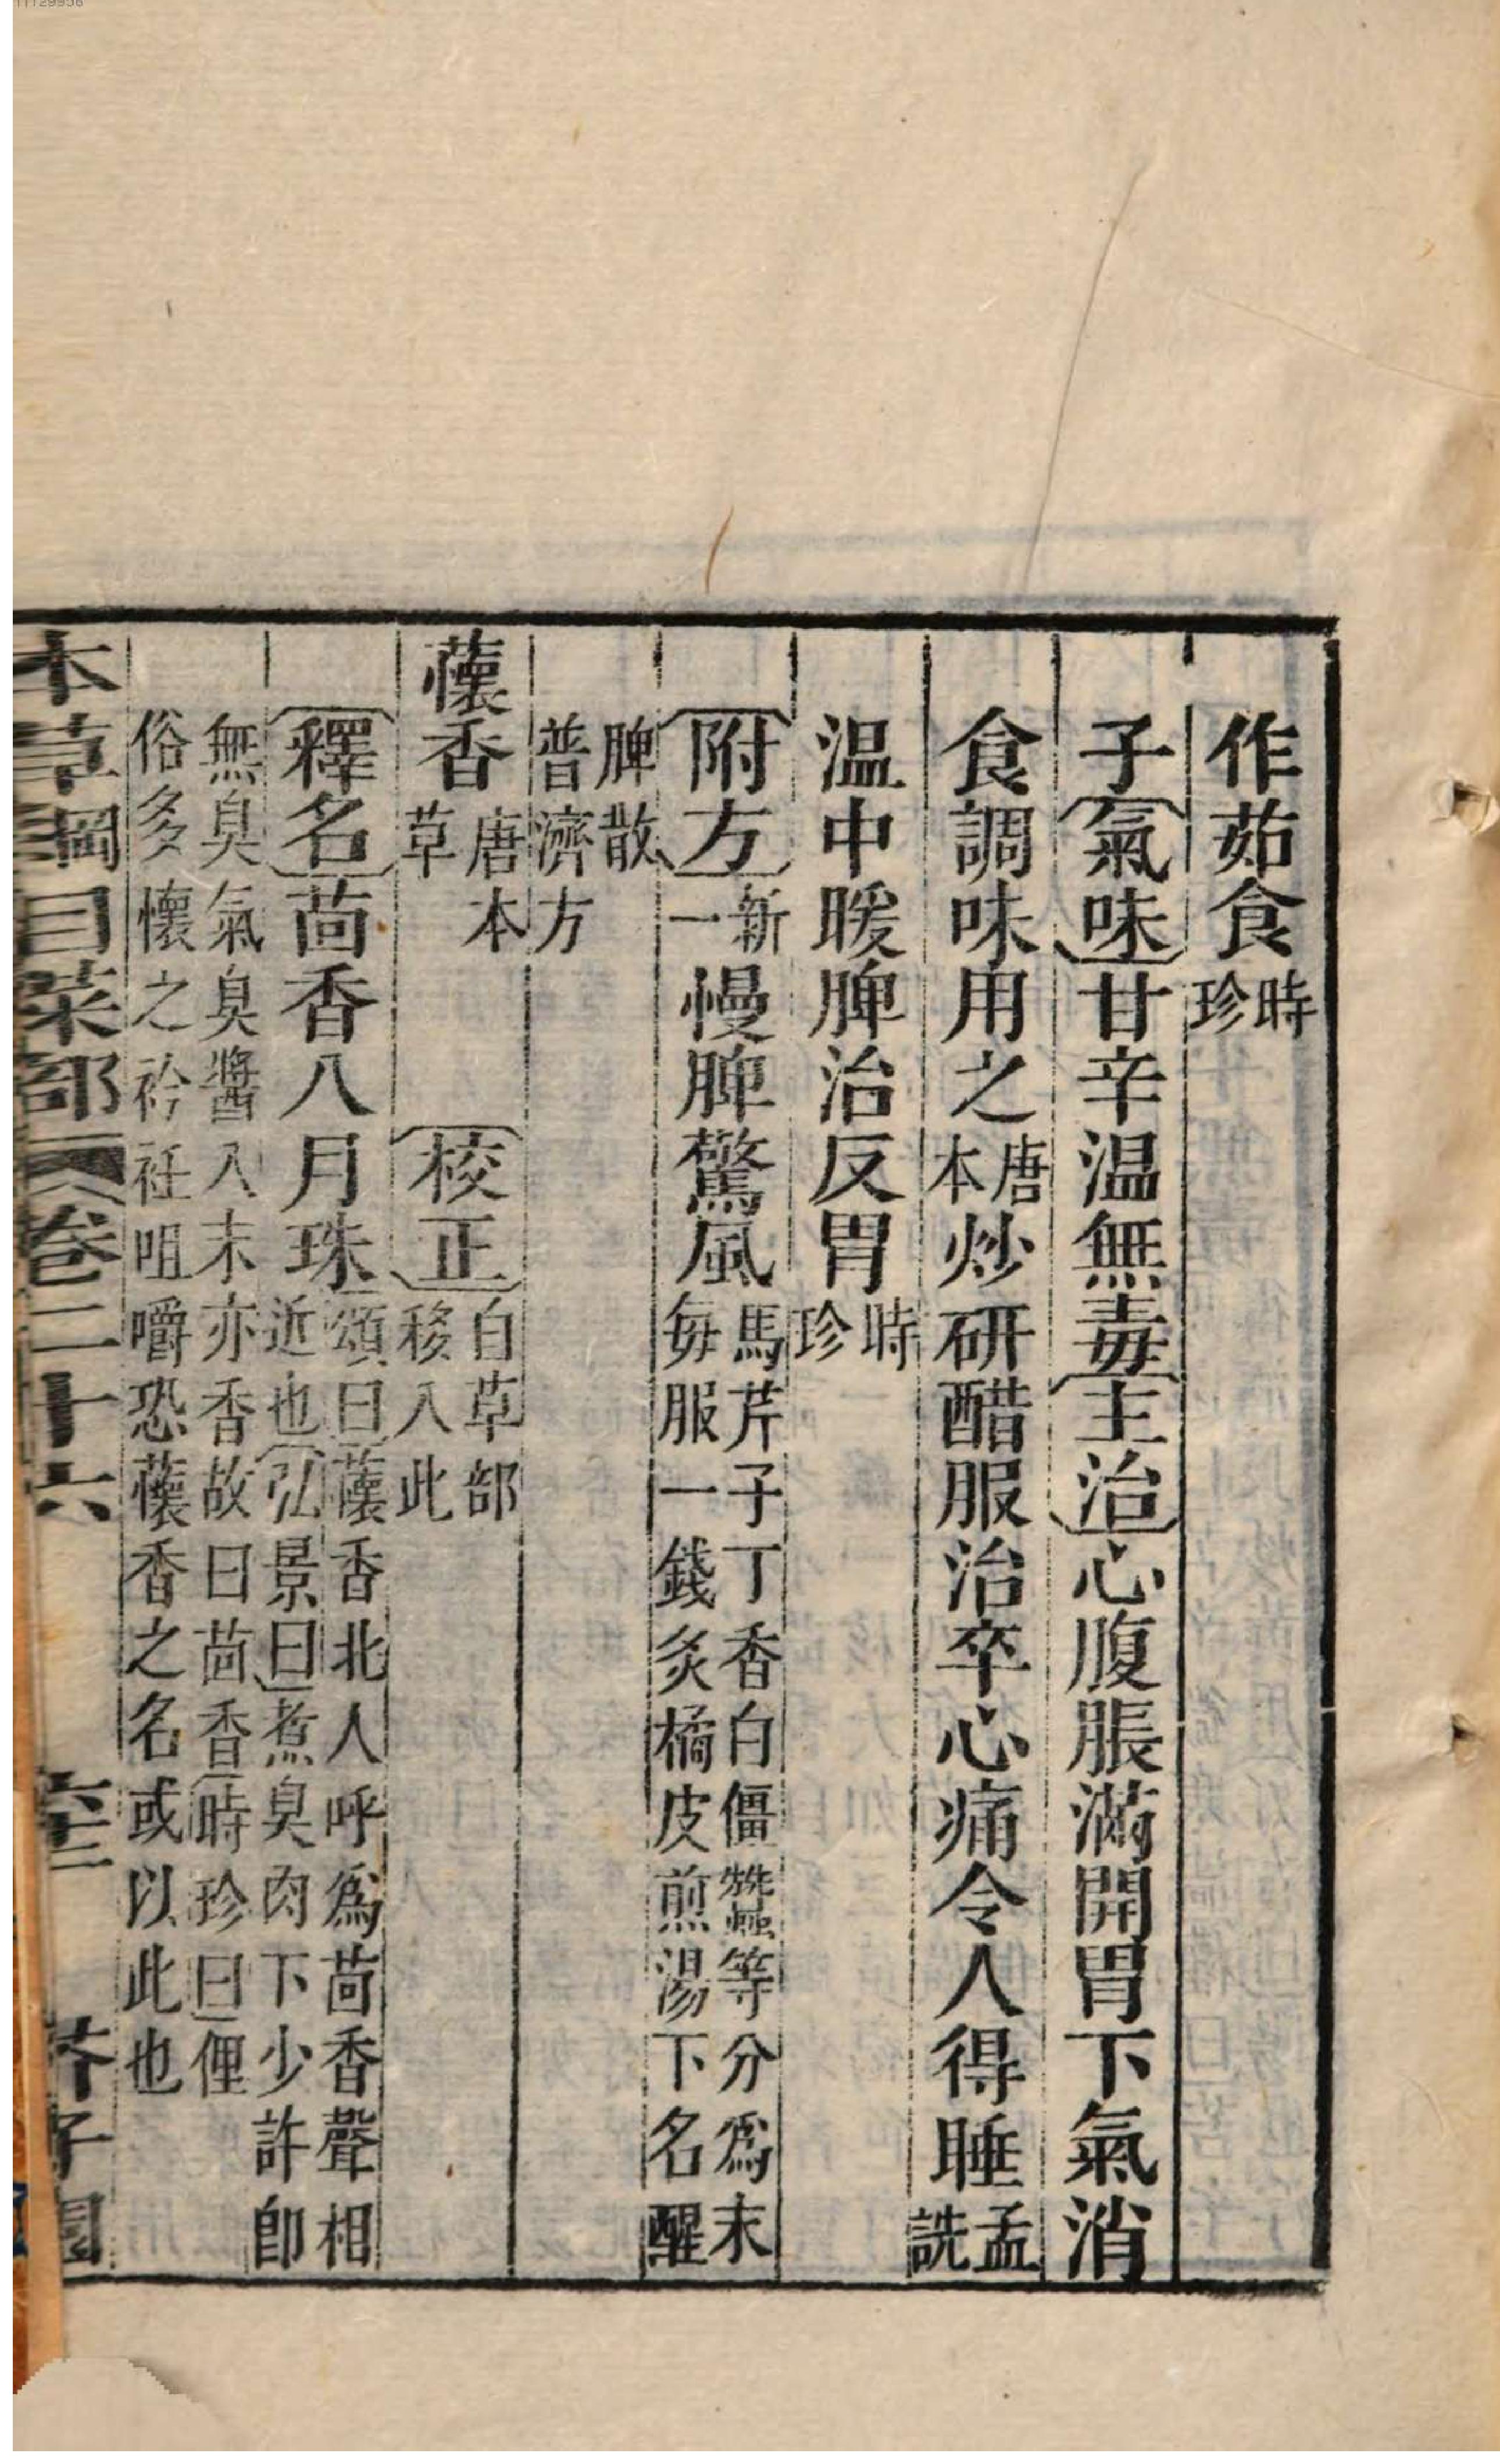 作茹食時珍
子〔氣味〕甘辛温無毒〔主治〕心腹脹滿開胃下氣消
食調味用之唐本炒研醋服治卒心痛令人得睡孟詵
温中暖脾治反胃時珍
〔附方〕新一慢脾驚風馬芹子丁香白僵蠶等分爲末每服一錢炙橘皮煎湯下名醒
脾散普濟方
蘹香唐本草〔校正〕自草部移入此
〔釋名〕茴香八月珠〔頌曰〕蘹香北人呼爲茴香聲相近也〔弘景曰〕煮臭肉下少許卽
無臭氣臭醬入末亦香故曰茴香〔時珍曰〕俚俗多懷之衿衽咀嚼恐蘹香之名或以此也
本草綱目菜部卷二十六 芥子園